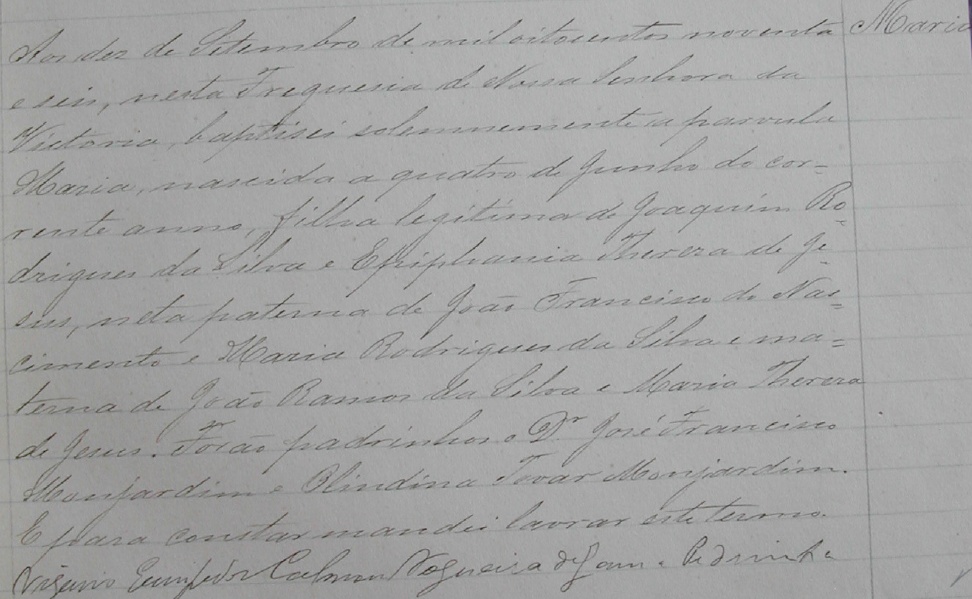 Aos dez de Setembro de mil oitocentos noventa
Maria
e seis, nesta Freguesia de Nossa Senhora da
Victoria, baptisei solemnemente a parvula
Maria, nascida a quatro de Junho do cor-
rente anno, filha legitima de Joaquim Ro-
drigues da Silva e Epiphania Thereza de Je-
sus, neta paterna de João Francisco do Nas=
cimento e Maria Rodrigues da Silva e ma=
terna de João Ramos da Silva e Maria Thereza
de Jesus. Forão padrinhos o Dr José Francisco
Monjardim e Olindina Tovar Monjardim.
E para constar mandei lavrar este termo.
Vigario Calmon Nogueira da Gama e Pedrinha